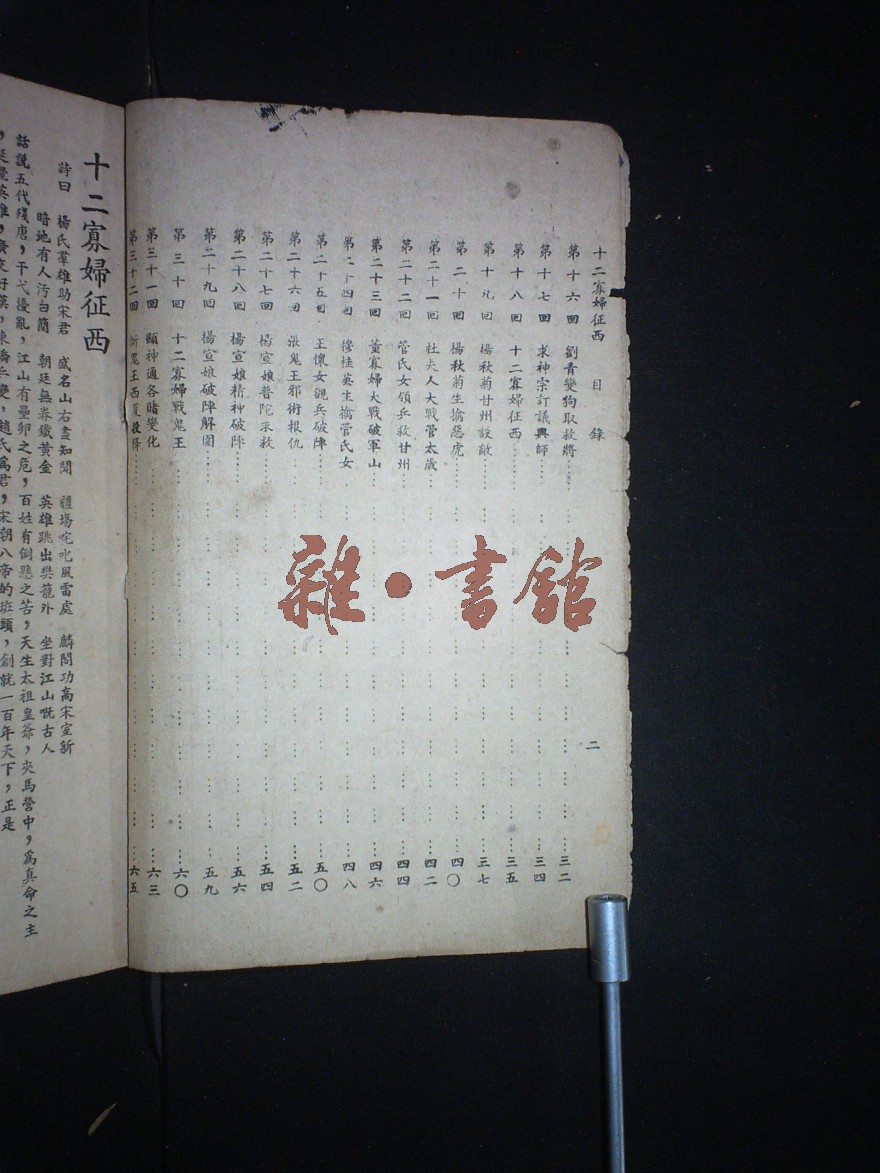 十二寡婦征西 目錄 二
第十六回 劉青變狗取救將 三二
第十七回 求神宗訂議興師 三四
第十八回 十二寡婦征西 三五
第十九回 楊秋菊甘州設敵 三七
第二十回 楊秋菊生擒惡虎 四〇
第二十一回 杜夫人大戰管太歲 四二
第二十二回 管氏女領兵救甘州 四四
第二十三回 董寡婦大戰破軍山 四六
第二十四回 穆桂英生擒管氏女 四八
第二十五回 王懷女親兵破陣 五〇
第二十六回 張鬼王邪術報仇 五二
第二十七回 楊宣娘普陀求救 五四
第二十八回 楊宣娘精神破陣 五六
第二十九回 楊宣娘破陣解圍 五九
第三十回 十二寡婦戰鬼王 六〇
第三十一回 顯神通各賭變化 六三
第三十二回 斬鬼王西夏投降 六五
十二寡婦征西
詩曰 楊氏羣雄助宋君 威名山右盡知聞 疆場咤叱風雷處 麟閣功高宋室新
暗地有人污白簡 朝廷無券鐵黃金 英雄跳出樊籠外 坐對江山嘅古人
話說五代殘唐，干戈擾亂，江山有壘卵之危，百姓有倒懸之苦，天生太祖皇爺，夾馬營中，爲真命之主
英雄，漢，陳橋兵變，趙氏爲君，宋朝八帝的班頭，創就一百年天下，正是
雜·書館